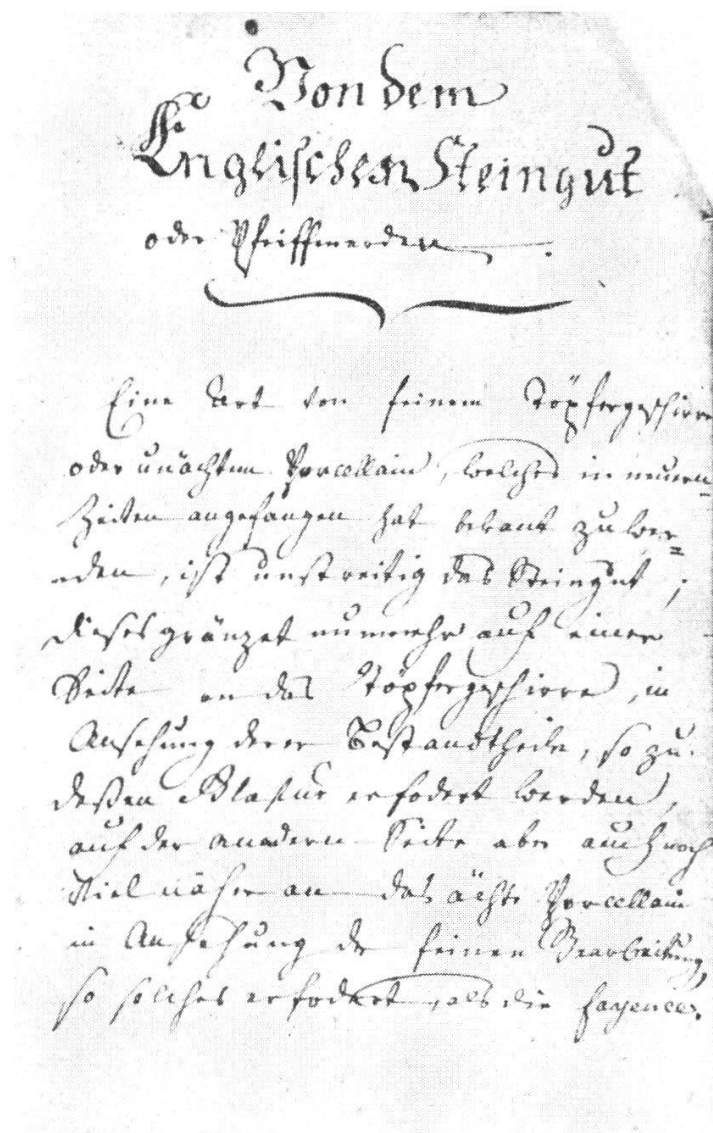 Von dem
Englischen Steingut
oder Pfeiffenerden
Eine Art von feinem Töpfergeschirre
oder unächten Porcellain, welches in neuern
Zeiten angefangen hat bekant zu wer=
den, ist unstreitig das Steingut;
dieses gränzet nunmehr auf einer
Seite an das Töpfergeschirre, in
Ansehung derer Bestandtheile, so zu
deßen Glasur erfodert werden,
auf der andern Seite aber auch noch
viel näher an das ächte Porcellain
in Ansehung der feinen Bearbeitung,
so solches erfodert, als die Fayence.